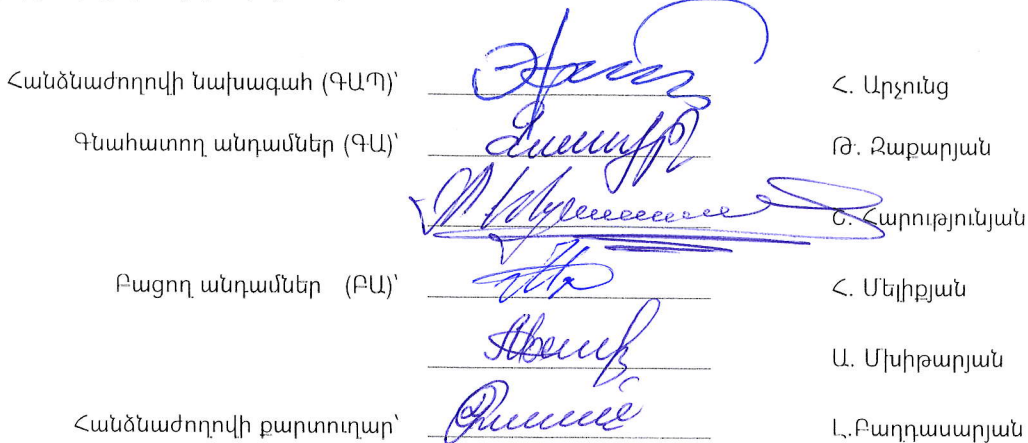 Հանձնաժողովի նախագահ (ԳԱՊ)՝ Հ. Արչունց
Գնահատող անդամներ (ԳԱ)՝ Թ. Զաքարյան
Հարությունյան
Բացող անդամներ (ԲԱ)՝ Հ. Մելիքյան
Ա. Մխիթարյան
Հանձնաժողովի քարտուղար՝ Լ.Բաղդասարյան